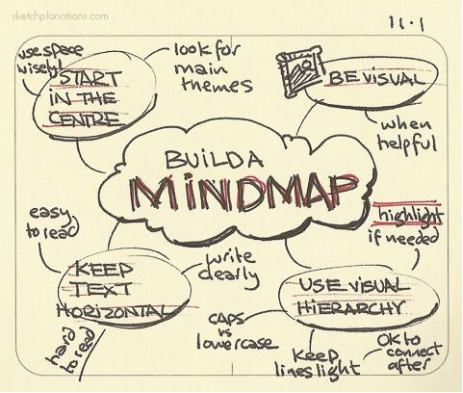 sketchplanations.com
11.1
use space
wisely!
START
IN THE
CENTRE
look for
main
themes
BE VISUAL
when
helpful
BUILD A
MINDMAP
highlight
if needed
easy
to read
KEEP
TEXT
HORIZONTAL
write
clearly
hard
to read
USE VISUAL
HIERARCHY
CAPS
vs
lowercase
Keep
lines light
OK to
connect
after